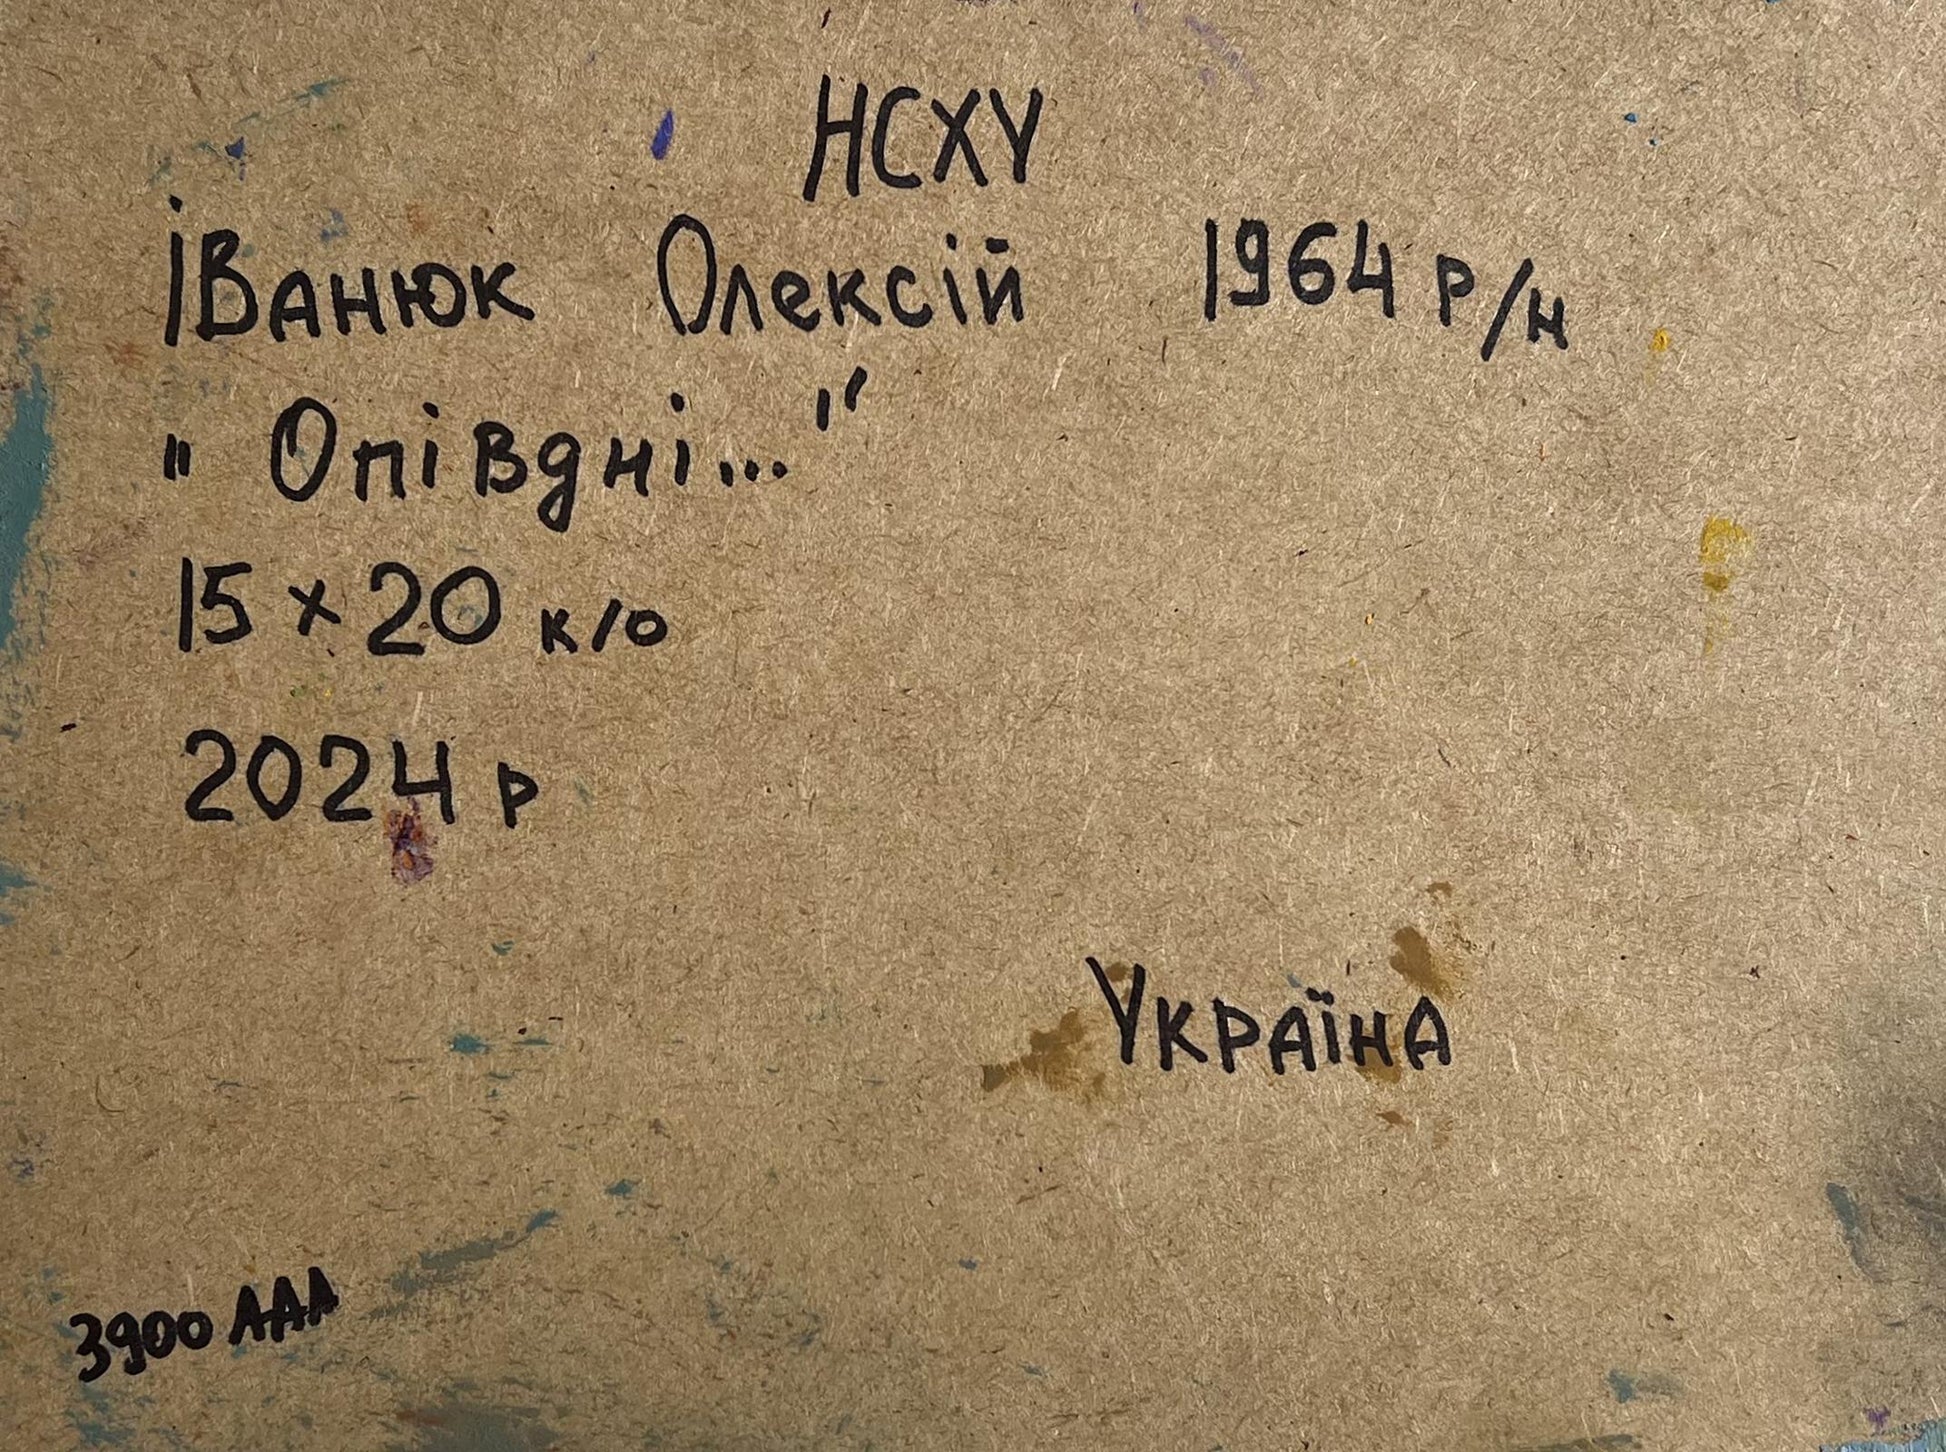 НСХУ
Іванюк Олексій 1964 р/н
"Опівдні..."
15 х 20 к/о
2024 р
Україна
3900 ААА